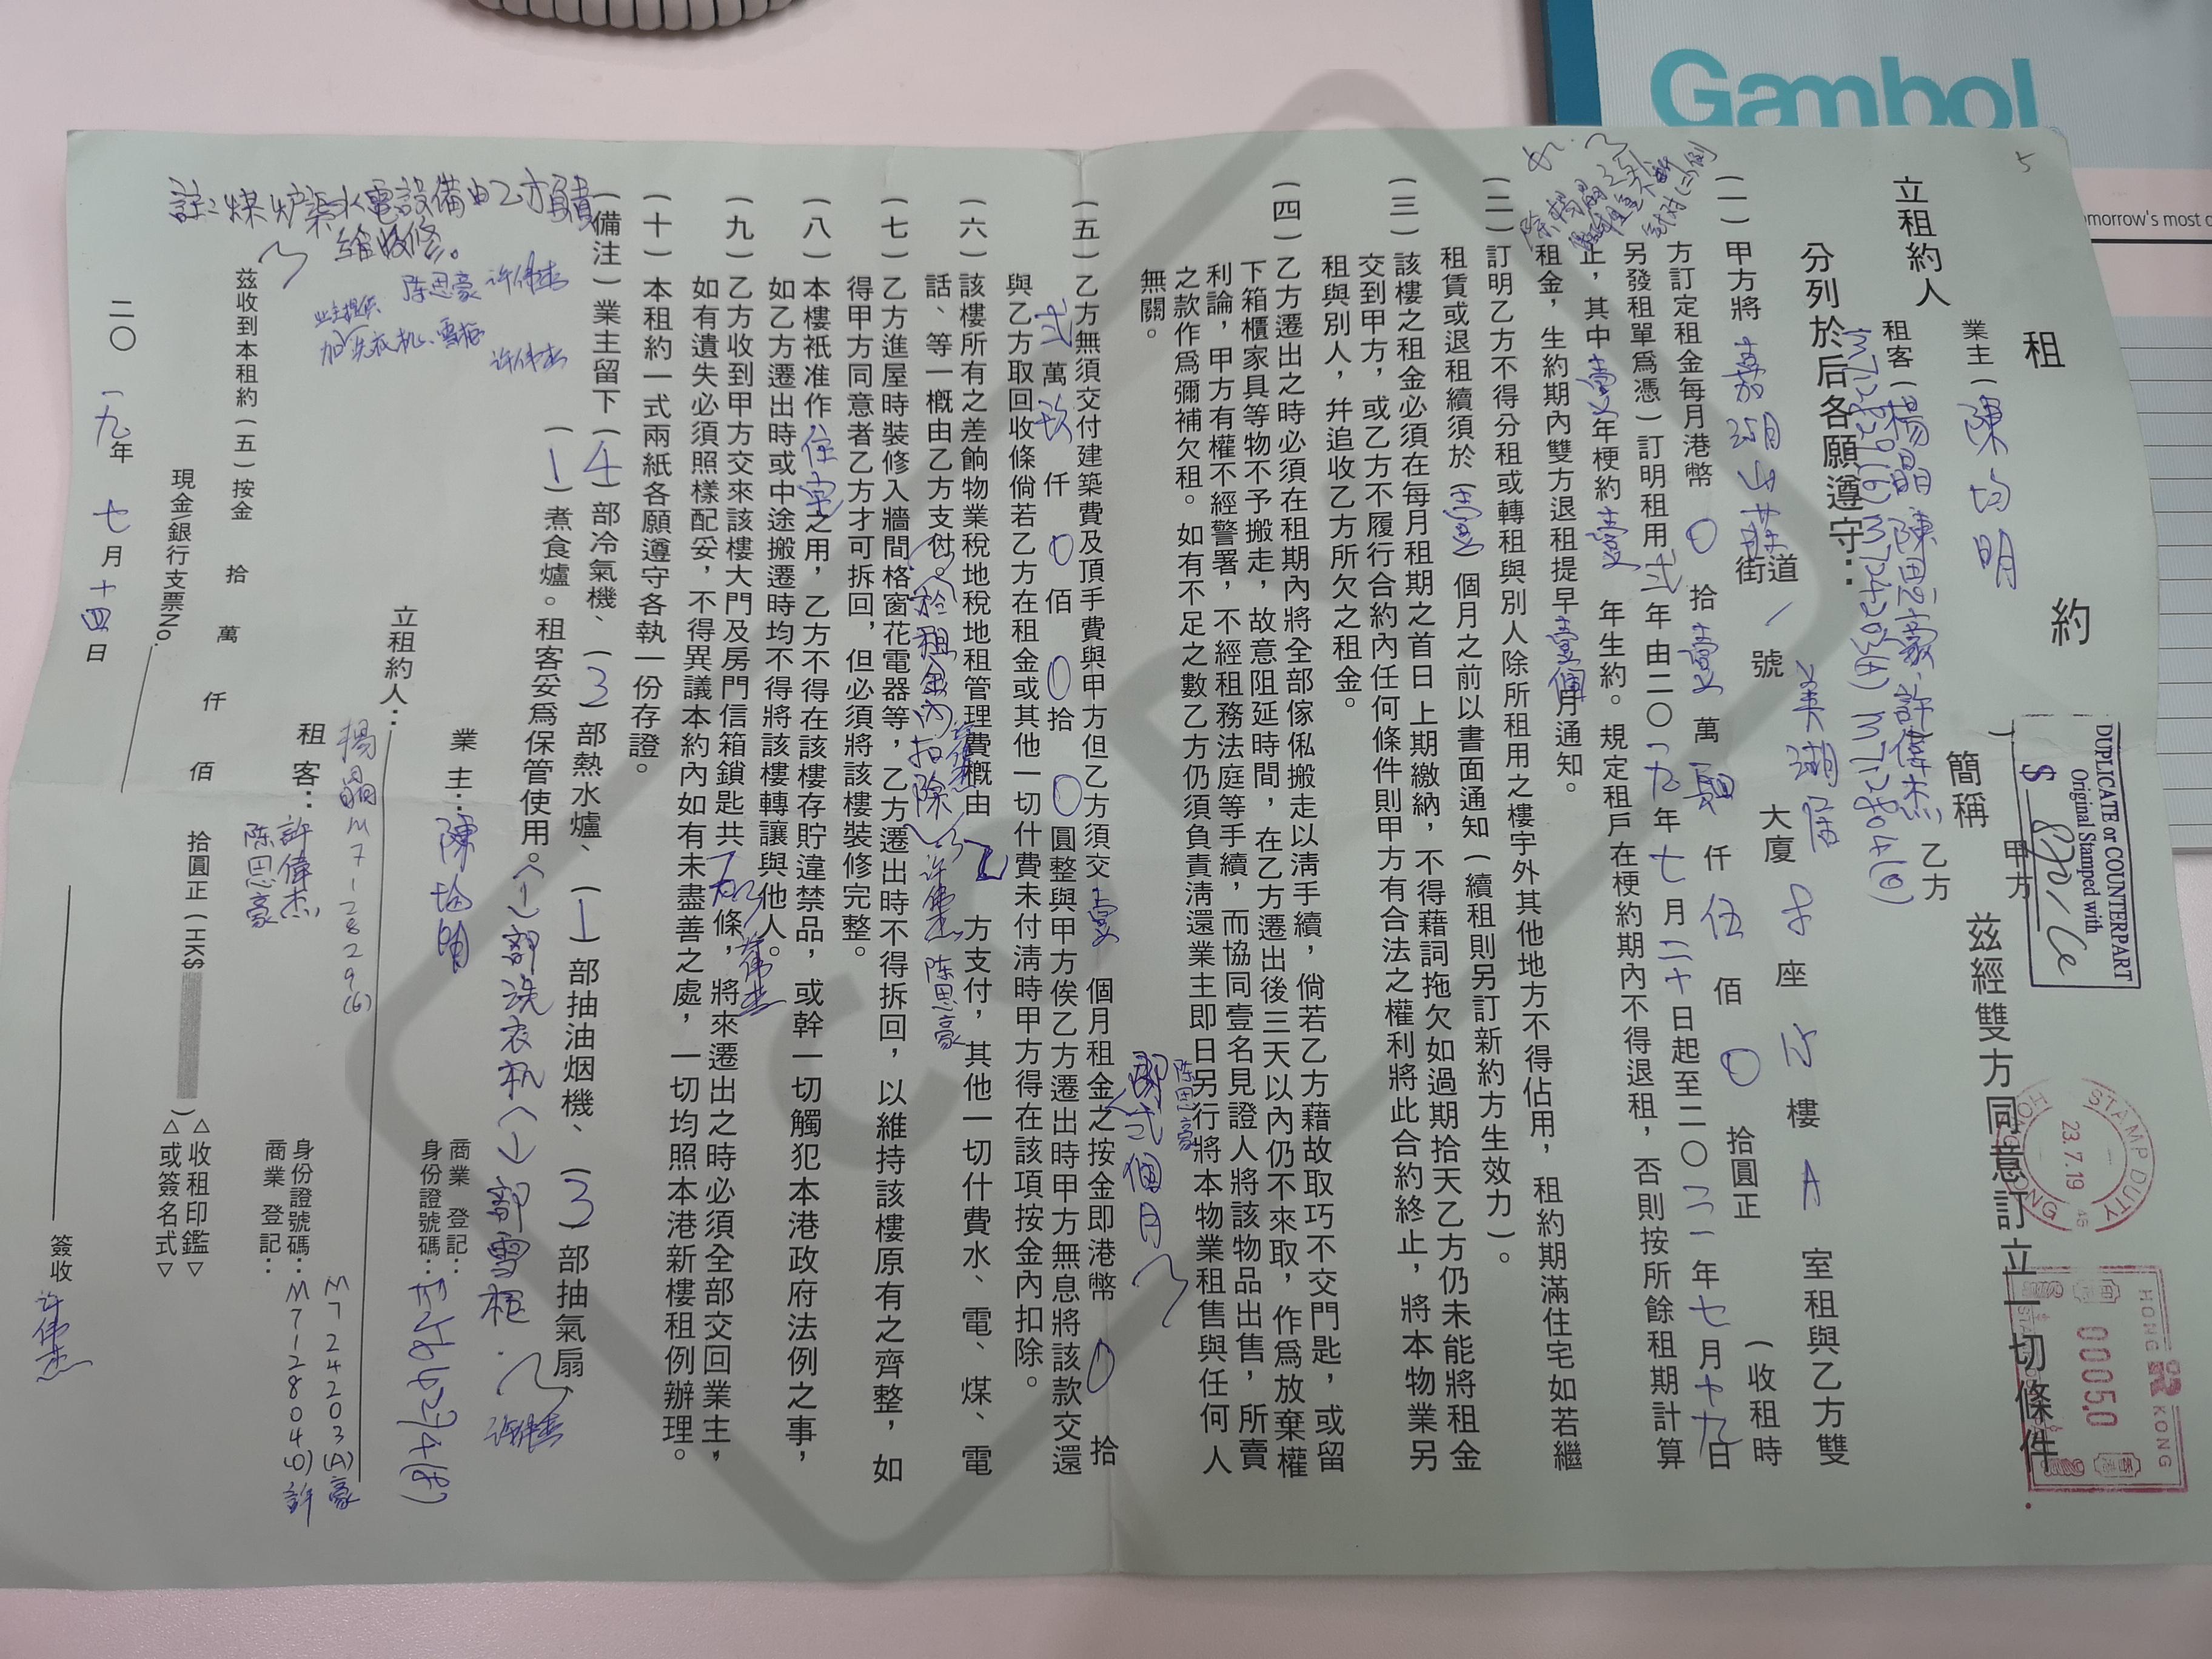 Gambol
omorrow's most
5
租 約
立租約人
業主（陳均明 ）
租客（楊晶 陳思豪 許偉杰
簡稱 甲方 乙方
茲經雙方同意訂立一切條件
分列於后各願遵守：
DUPLICATE or COUNTERPART
Original Stamped with
$
STAMP DUTY
23.7.19
HONG KONG
HONG KONG
00050
（一）甲方將嘉湖山莊街道／號美湖居大廈 座 樓A室租與乙方雙
方訂定租金每月港幣0拾壹萬 仟伍佰0拾圓正（收租時
另發租單為憑）訂明租用弍年由二〇一九年七月二十日起至二〇二一年七月十九日
止，其中壹年梗約壹年生約。規定租戶在梗約期內不得退租，否則按所餘租期計算
租金，生約期內雙方退租提早壹個月通知。
（二）訂明乙方不得分租或轉租與別人除所租用之樓宇外其他地方不得佔用，租約期滿住宅如若繼
租賃或退租續須於（壹）個月之前以書面通知（續租則另訂新約方生效力）。
（三）該樓之租金必須在每月租期之首日上期繳納，不得藉詞拖欠如過期拾天乙方仍未能將租金
交到甲方，或乙方不履行合約內任何條件則甲方有合法之權利將此合約終止，將本物業另
租與別人，幷追收乙方所欠之租金。
（四）乙方遷出之時必須在租期內將全部傢俬搬走以淸手續，倘若乙方藉故取巧不交門匙，或留
下箱櫃家具等物不予搬走，故意阻延時間，在乙方遷出後三天以內仍不來取，作爲放棄權
利論，甲方有權不經警署，不經租務法庭等手續，而協同壹名見證人將該物品出售，所賣
之款作爲彌補欠租。如有不足之數乙方仍須負責淸還業主即日另行將本物業租售與任何人
無關。
即弍個月
陈思豪
（五）乙方無須交付建築費及頂手費與甲方但乙方須交壹個月租金之按金即港幣0拾
弍萬玖仟0佰0拾0圓整與甲方俟乙方遷出時甲方無息將該款交還
與乙方取回收條倘若乙方在租金或其他一切什費未付淸時甲方得在該項按金內扣除。
（六）該樓所有之差餉物業稅地稅地租管理費概由乙方支付，其他一切什費水、電、煤、電
話、等一概由乙方支付。（於租金內扣除）许伟杰 陈思豪
（七）乙方進屋時裝修入牆間格窗花電器等，乙方遷出時不得拆回，以維持該樓原有之齊整，如
得甲方同意者乙方才可拆回，但必須將該樓裝修完整。
（八）本樓衹准作住宅之用，乙方不得在該樓存貯違禁品，或幹一切觸犯本港政府法例之事，
如乙方遷出時或中途搬遷時均不得將該樓轉讓與他人。
（九）乙方收到甲方交來該樓大門及房門信箱鎖匙共 條，將來遷出之時必須全部交回業主，
如有遺失必須照樣配妥，不得異議本約內如有未盡善之處，一切均照本港新樓租例辦理。
（十）本租約一式兩紙各願遵守各執一份存證。
（備注）業主留下（4）部冷氣機、（3）部熱水爐、（1）部抽油烟機、（3）部抽氣扇
（1）煮食爐。租客妥爲保管使用。（1）部洗衣机（1）部雪柜. 许伟杰
註：煤炉渠水電設備由乙方負責
維修。
陈思豪 许伟杰
业主提供
加洗衣机、雪柜
许伟杰
立租約人：
業主：陳均明
商業登記：
身份證號碼：
租客：
楊晶 M712829(6)
許偉杰
陈思豪
身份證號碼：M724203(A)豪
M712804(0)許
商業登記：
茲收到本租約（五）按金 拾 萬 仟 佰 拾圓正（HK$ ）
△收租印鑑▽
△或簽名式▽
現金\銀行支票No.
二〇一九年七月十四日
簽收 许伟杰